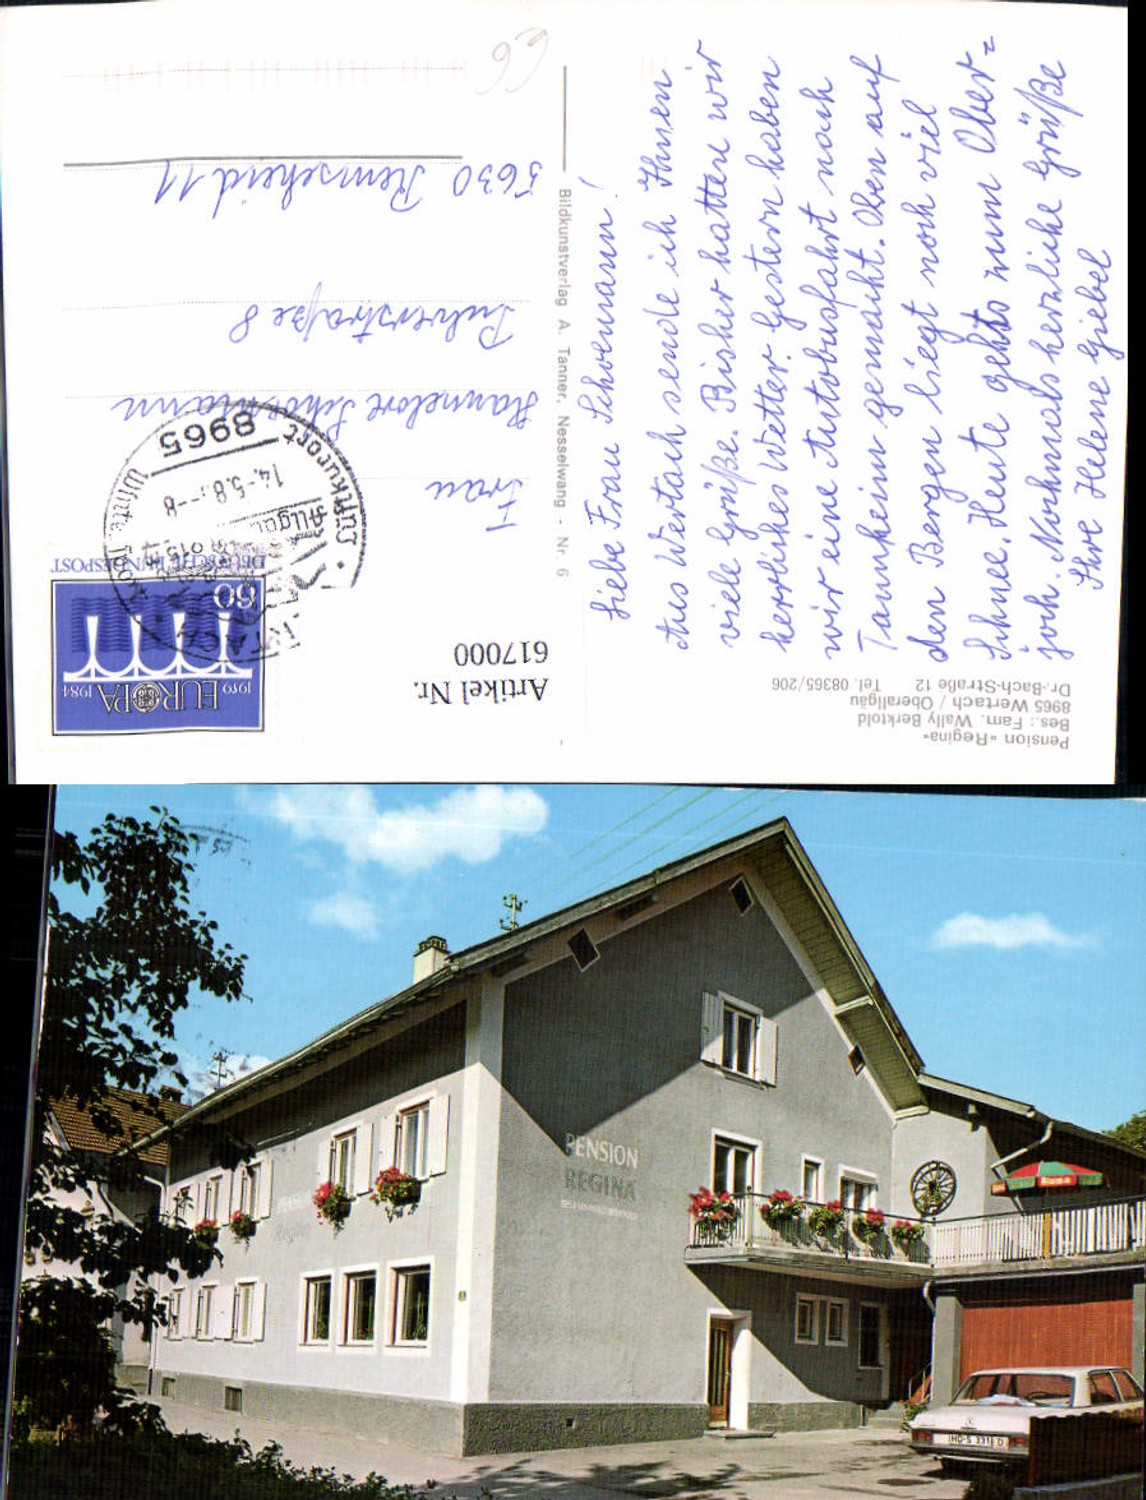 66
Liebe Frau Schoenmann!
Aus Wertach sende ich Ihnen
viele Grüße. Bisher hatten wir
herrliches Wetter. Gestern haben
wir eine Autobusfahrt nach
Tannheim gemacht. Oben auf
den Bergen liegt noch viel
Schnee. Heute gehts zum Ober=
joch. Nochmals herzliche Grüße
Ihre Helene Giebel
Pension »Regina«
Bes.: Fam. Wally Berktold
8965 Wertach / Oberallgäu
Dr.-Bach-Straße 12 Tel. 08365/206
Bildkunstverlag A. Tanner, Nesselwang - Nr. 6
Artikel Nr.
617000
EUROPA
1959 1984
60
DEUTSCHE BUNDESPOST
8965
14.-5.8
-8
Luftkurort
Allgäu
Frau
Hannelore Schoenmann
Pulverstraße 8
5630 Remscheid 11
PENSION
REGINA